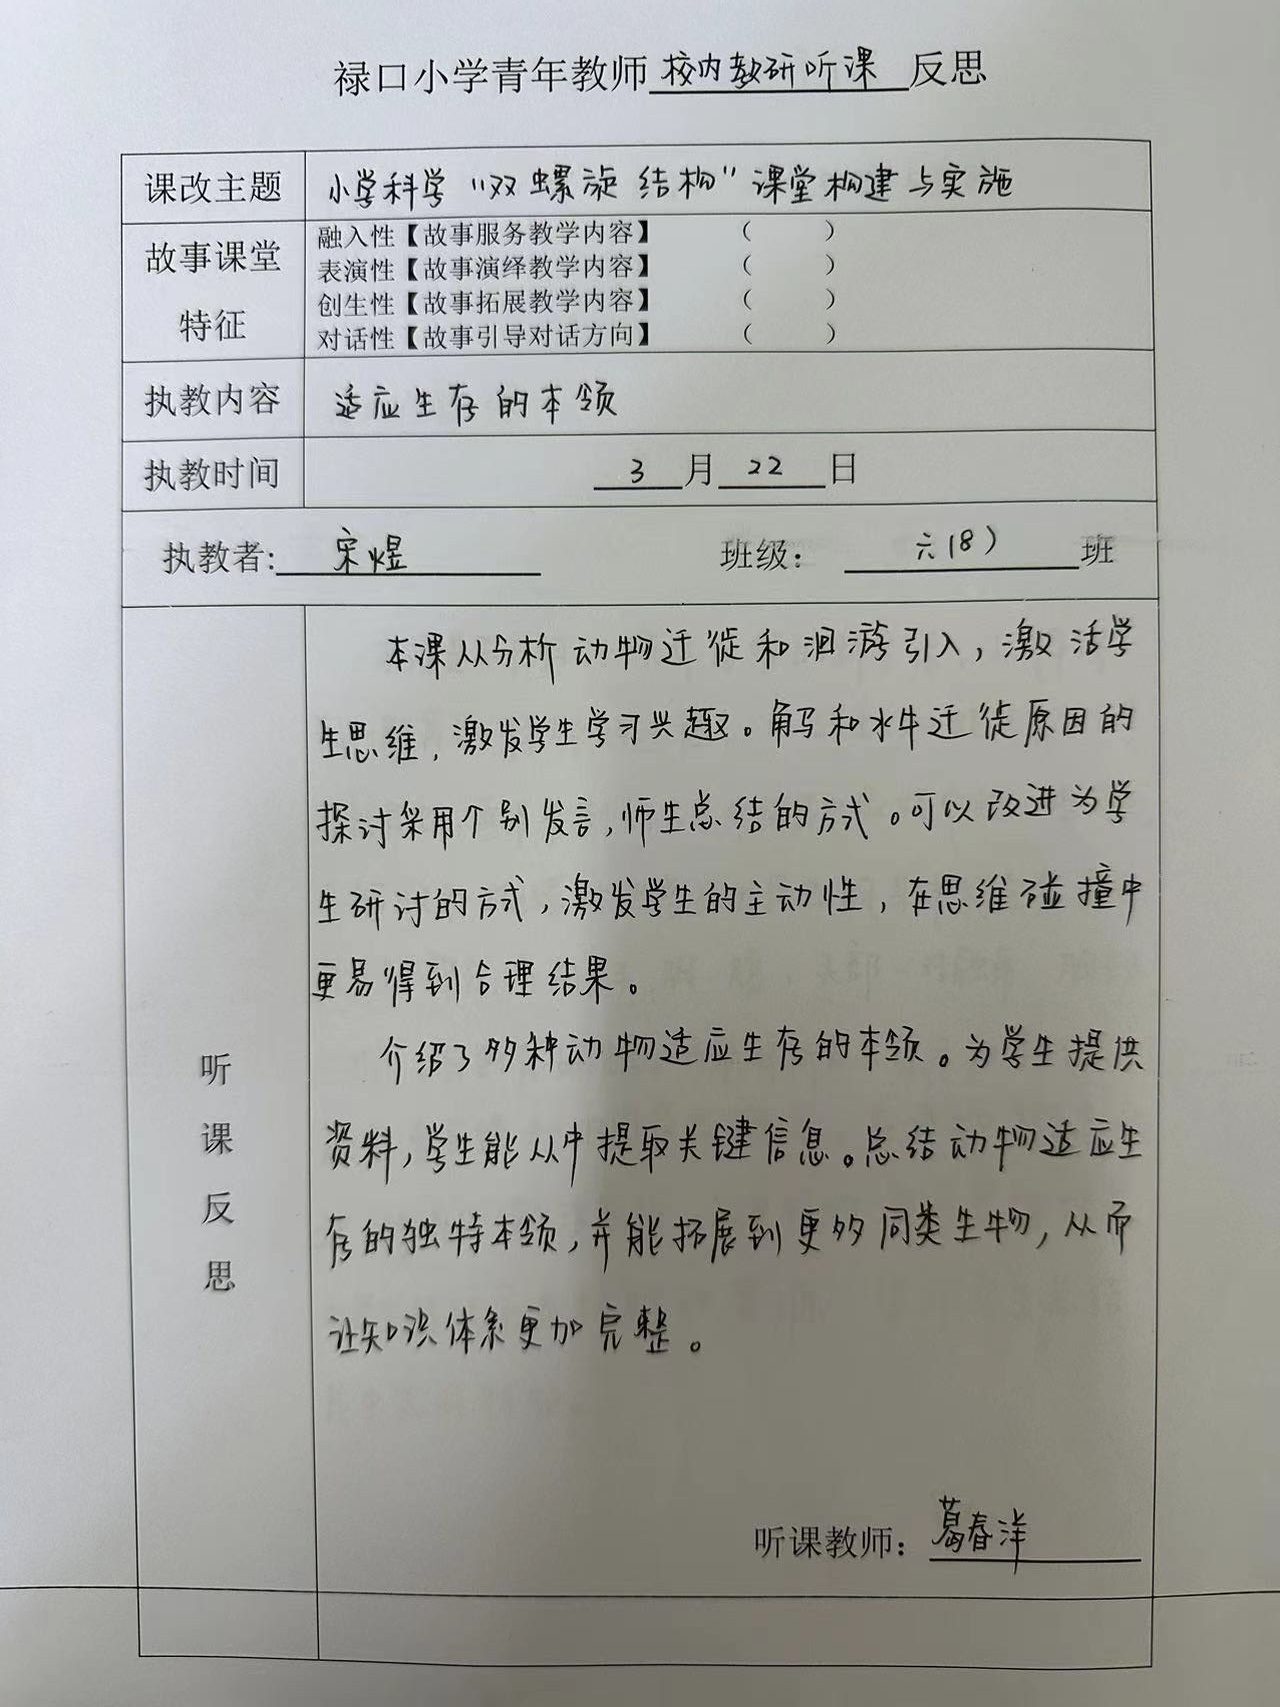 禄口小学青年教师校内教研听课反思
课改主题 小学科学“双螺旋结构”课堂构建与实施
故事课堂特征
融入性【故事服务教学内容】 （ ）
表演性【故事演绎教学内容】 （ ）
创生性【故事拓展教学内容】 （ ）
对话性【故事引导对话方向】 （ ）
执教内容 适应生存的本领
执教时间 3月22日
执教者: 宋煜 班级： 六(8)班
听课反思
本课从分析动物迁徙和洄游引入，激活学
生思维，激发学生学习兴趣。解和水牛迁徙原因的
探讨采用个别发言，师生总结的方式。可以改进为学
生研讨的方式，激发学生的主动性，在思维碰撞中
更易得到合理结果。
介绍了多种动物适应生存的本领。为学生提供
资料，学生能从中提取关键信息。总结动物适应生
存的独特本领，并能拓展到更多同类生物，从而
让知识体系更加完整。
听课教师：葛春洋